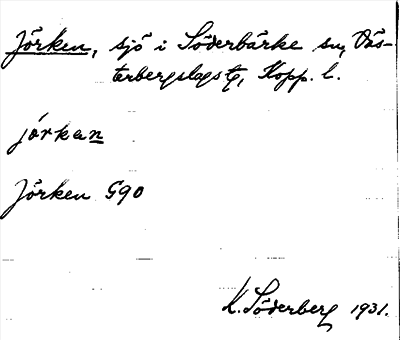 Jörken, sjö i Söderbärke sn, Väs-
terbergslags tg, Kopp. l.
jö́rkan
Jörken G90
K. Söderberg 1931.